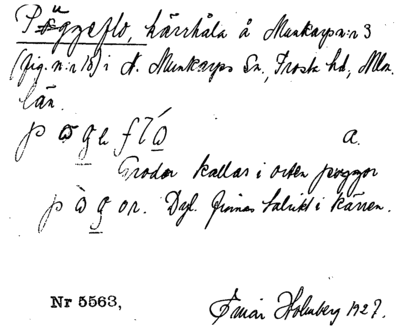 Pöggeflo, kärrhåla å Munkarp n:r 3
(fig. n:r 18) i N. Munkarps Sn., Frosta hd, Mlm.
län.
a.
Grodor kallas i orten poggor
Dyl. finnas talrikt i kärren.
Nr 5563,
Einar Holmberg 1927.